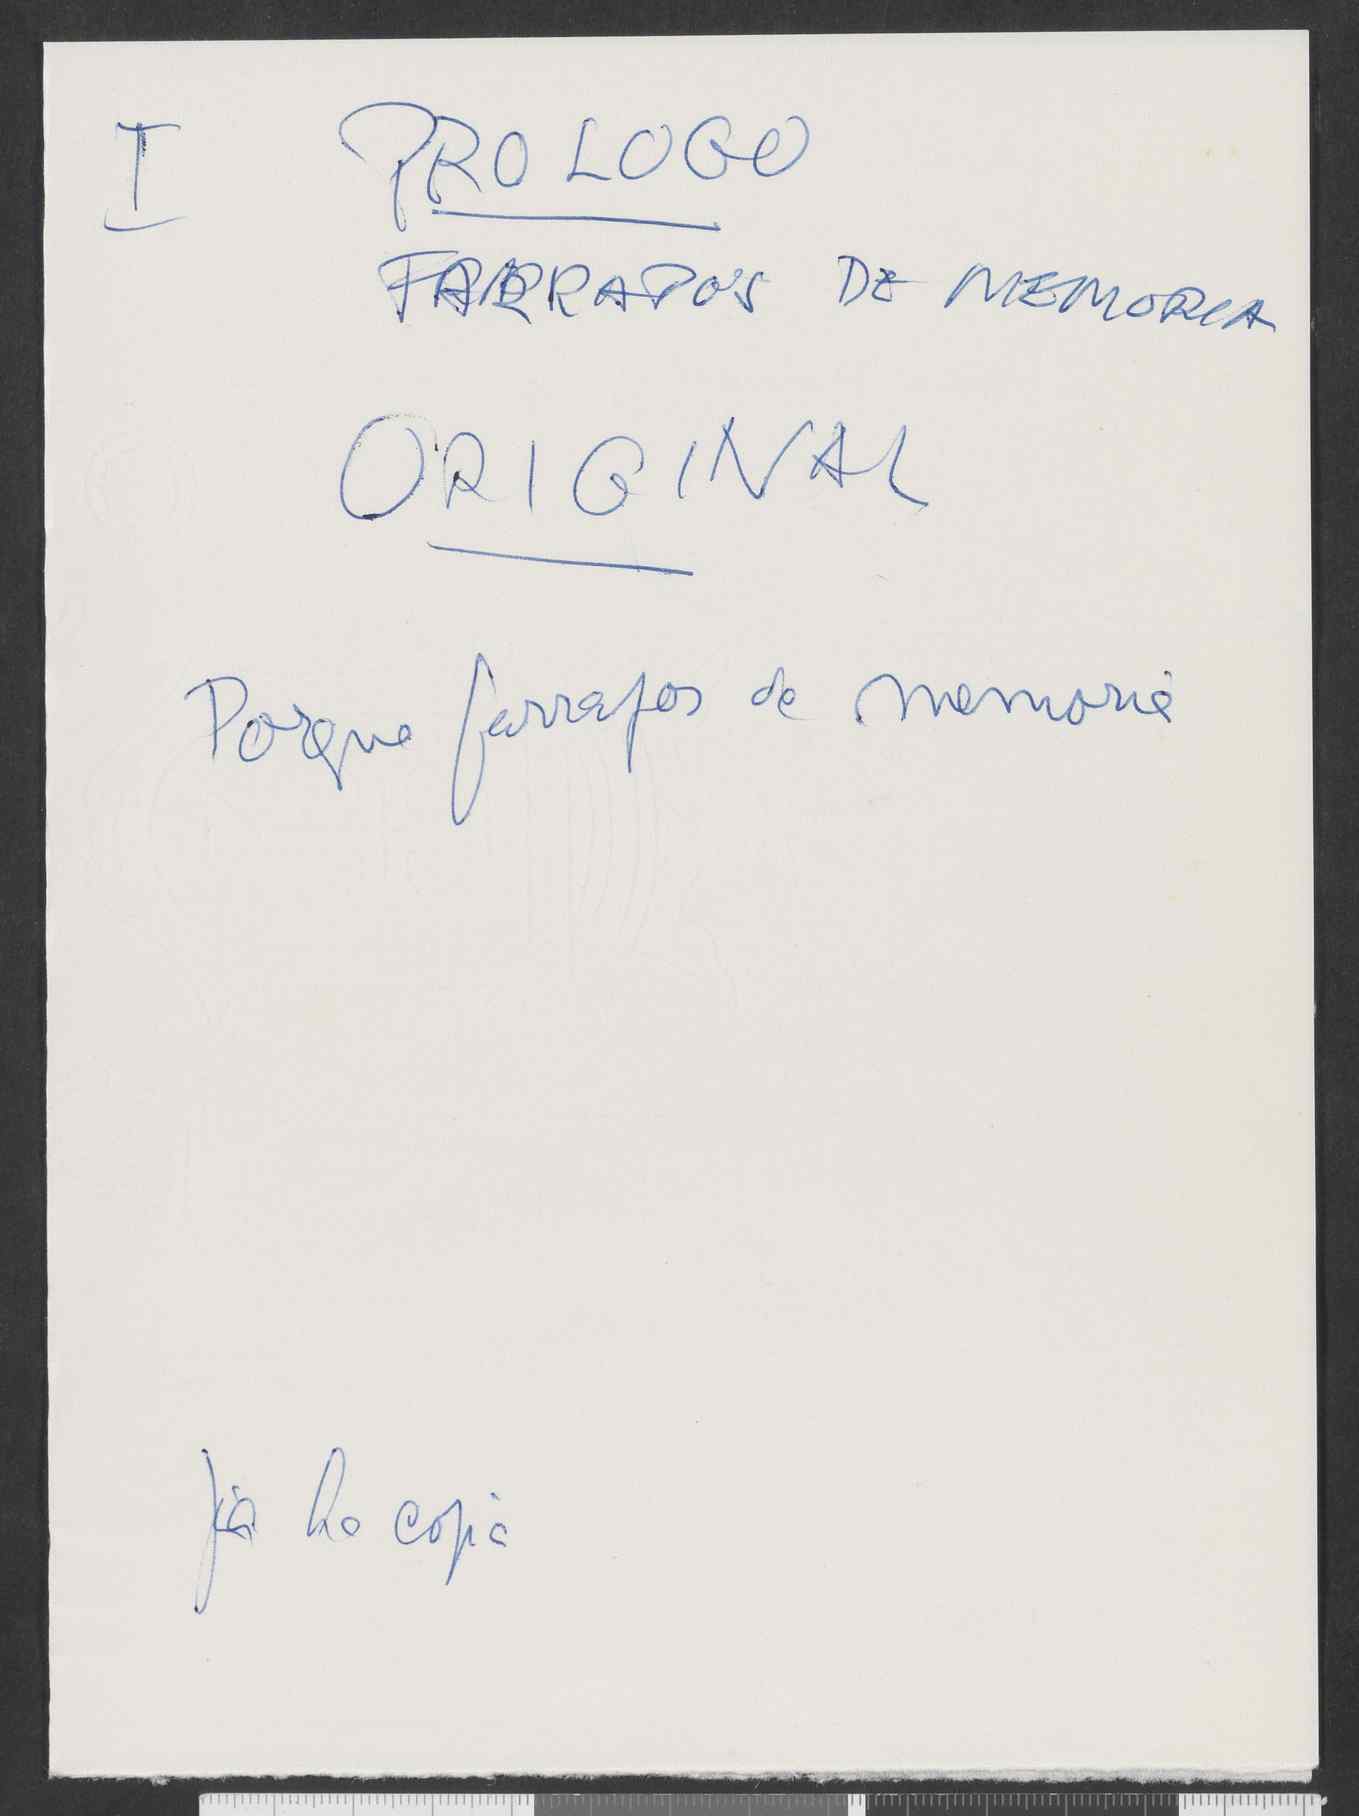 I PROLOGO
FARRAPOS DE MEMORIA
ORIGINAL
Porque farrapos de memoria
já ha copia